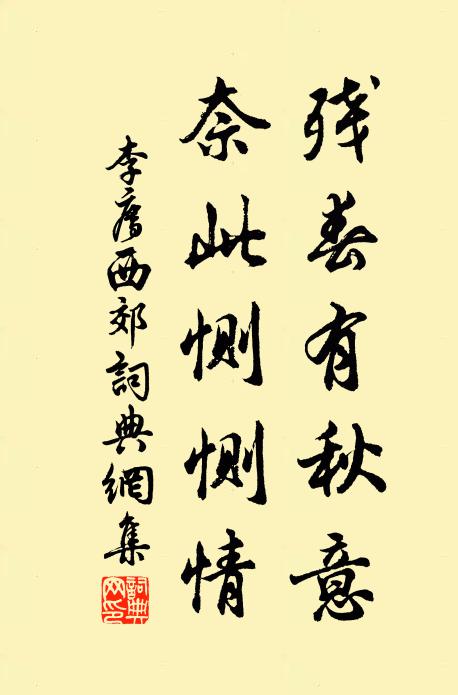 残春有秋意
奈此惻惻情
李廌西郊詞典網集
詞典网印